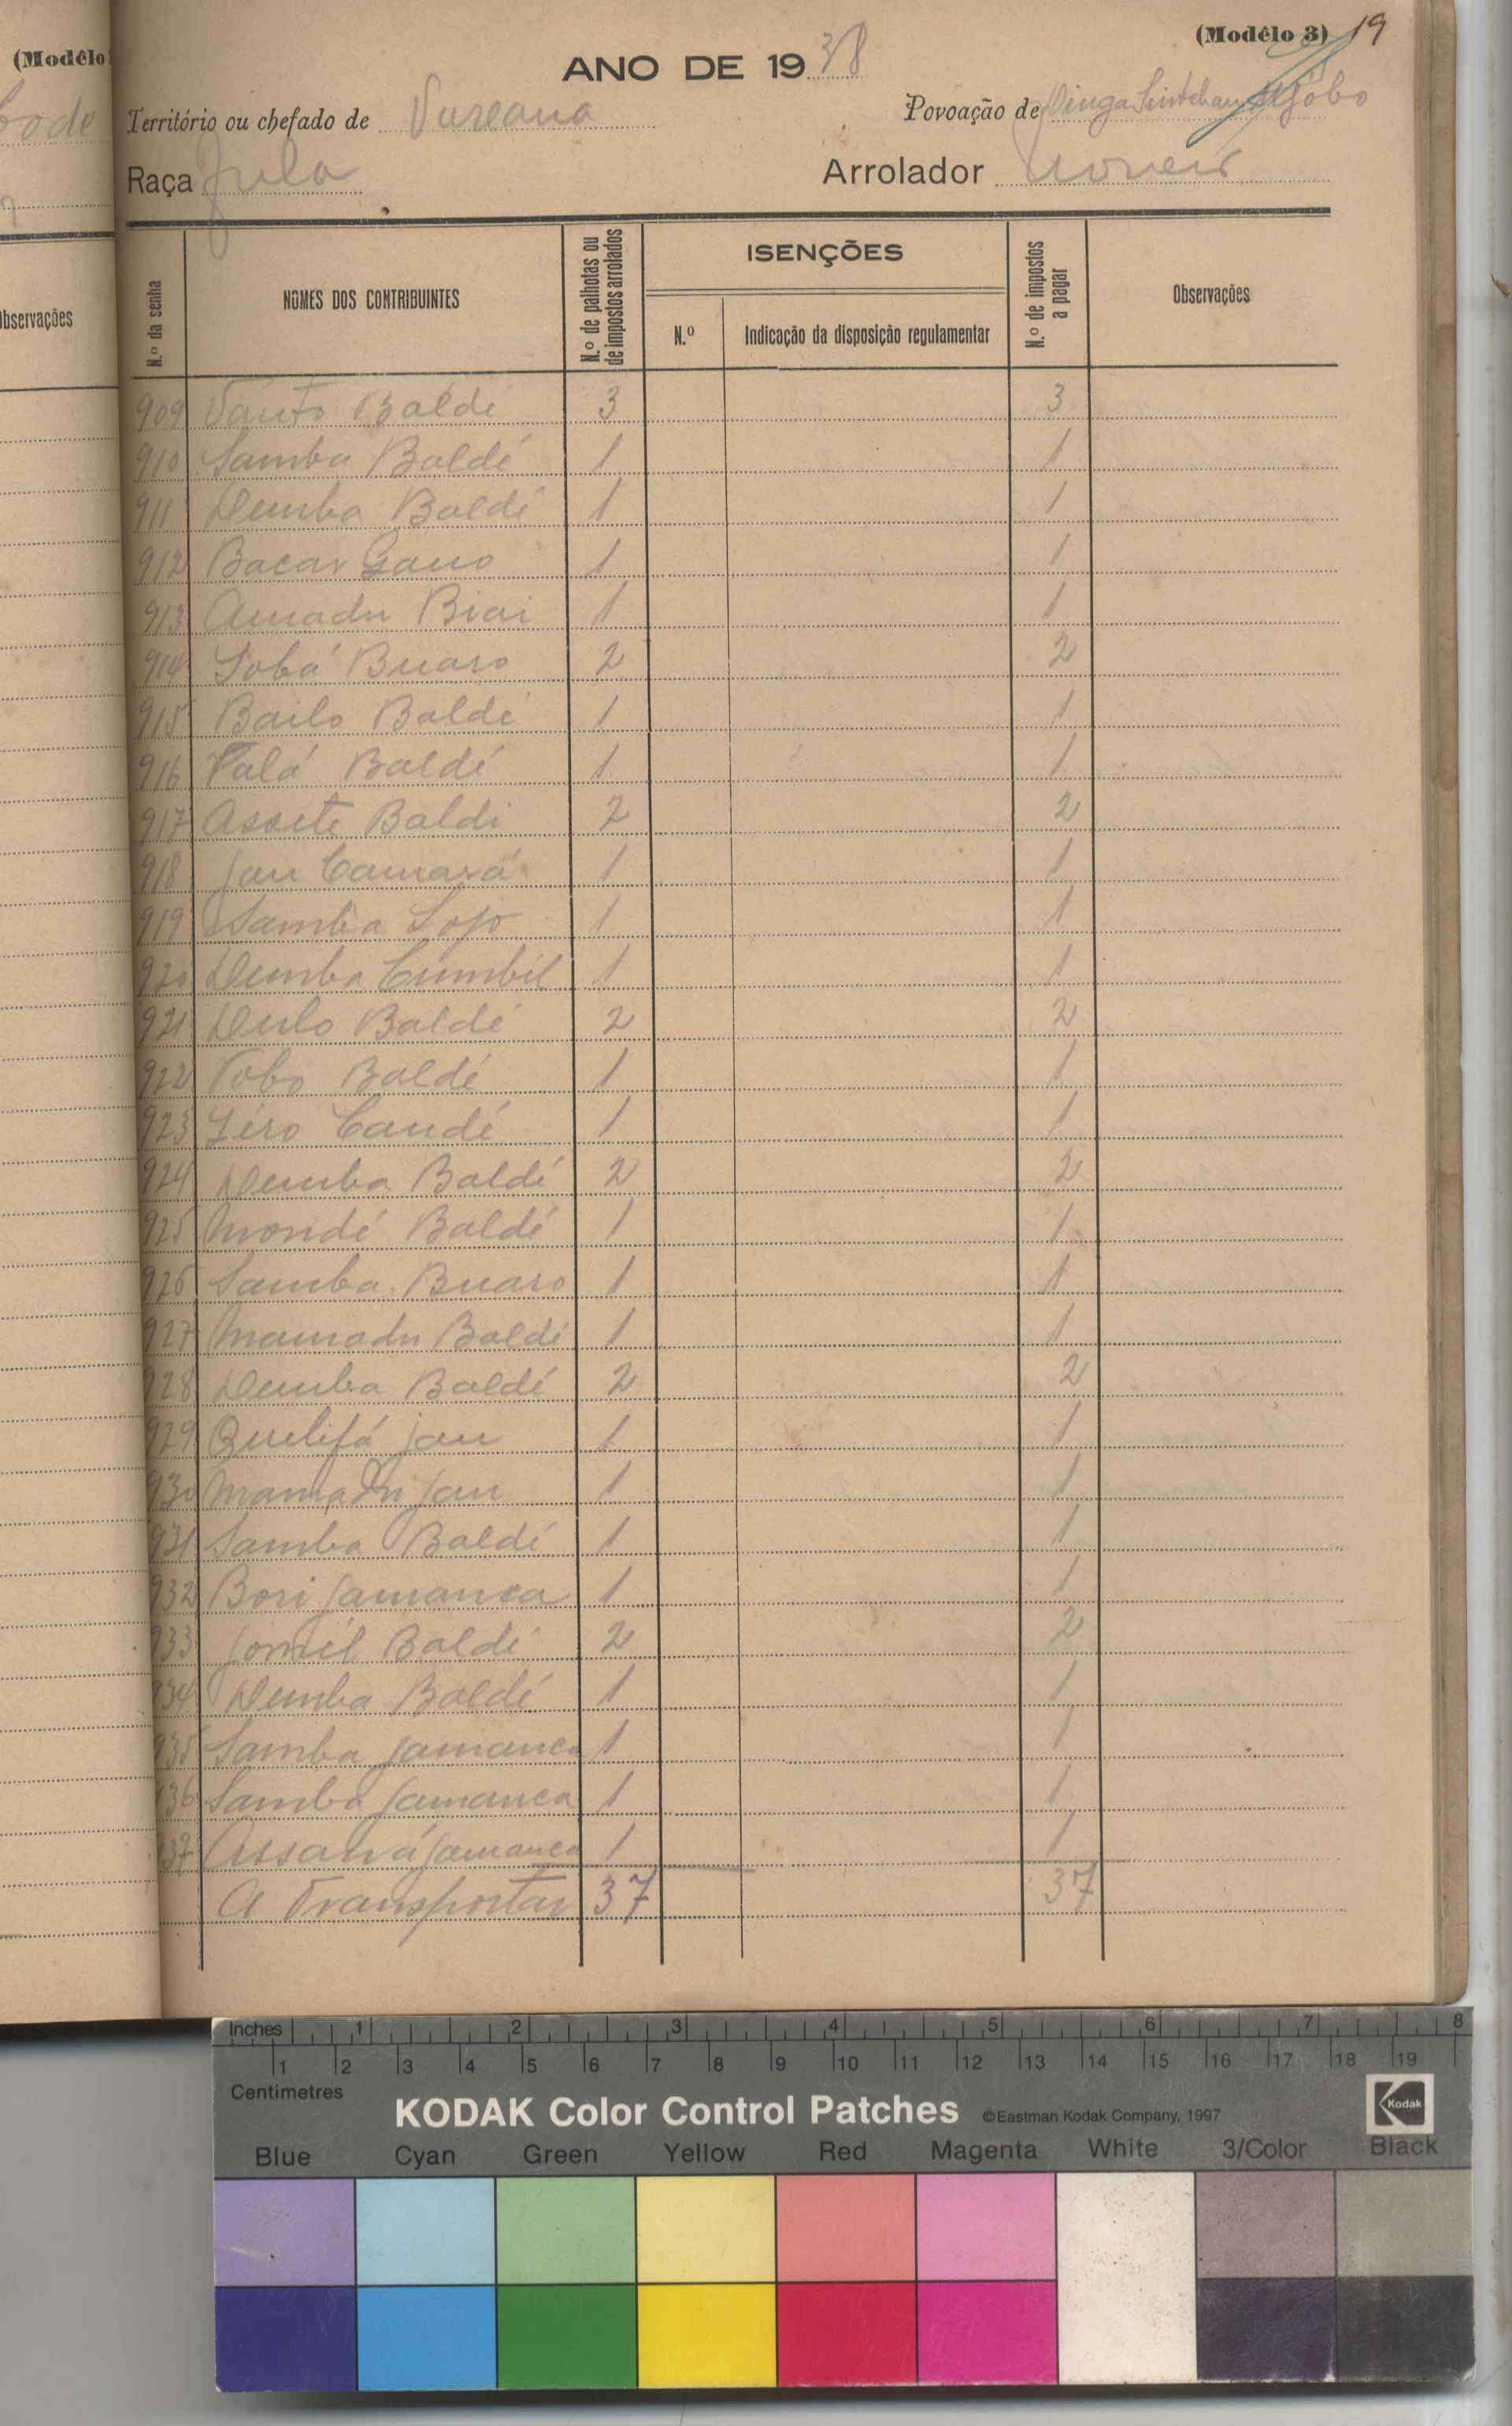 (Modêlo 3) 19
ANO DE 19 38
Território ou chefado de
Povoação de
Raça Fula
Arrolador
N.º da senha
NOMES DOS CONTRIBUINTES
N.º de palhotas ou de impostos arrolados
ISENÇÕES
N.º
Indicação da disposição regulamentar
N.º de impostos a pagar
Observações
909 Baldé 3 3
910 Samba Baldé 1 1
911 Demba Baldé 1 1
912 Bacar Gano 1 1
913 Amadu Biai 1 1
914 Buaro 2 2
915 Bailo Baldé 1 1
916 Baldé 1 1
917 Assete Baldi 2 2
918 Jau Camará 1 1
919 Samba 1 1
920 Demba Cumbil 1 1
921 Dulo Baldé 2 2
922 Baldé 1 1
923 Candé 1 1
924 Demba Baldé 2 2
925 Mondé Baldé 1 1
926 Samba Buaro 1 1
927 Mamadu Baldé 1 1
928 Demba Baldé 2 2
929 Quelifá Jau 1 1
930 Mamadu Jau 1 1
931 Samba Baldé 1 1
932 Bori Jamanca 1 1
933 Baldé 2 2
934 Demba Baldé 1 1
935 Samba Jamanca 1 1
936 Samba Jamanca 1 1
937 Jamanca 1 1
A Transportar 37 37
(Modêlo
Observações
Inches 1 2 3 4 5 6 7 8
1 2 3 4 5 6 7 8 9 10 11 12 13 14 15 16 17 18 19
Centimetres
KODAK Color Control Patches ©Eastman Kodak Company, 1997 Kodak
Blue Cyan Green Yellow Red Magenta White 3/Color Black